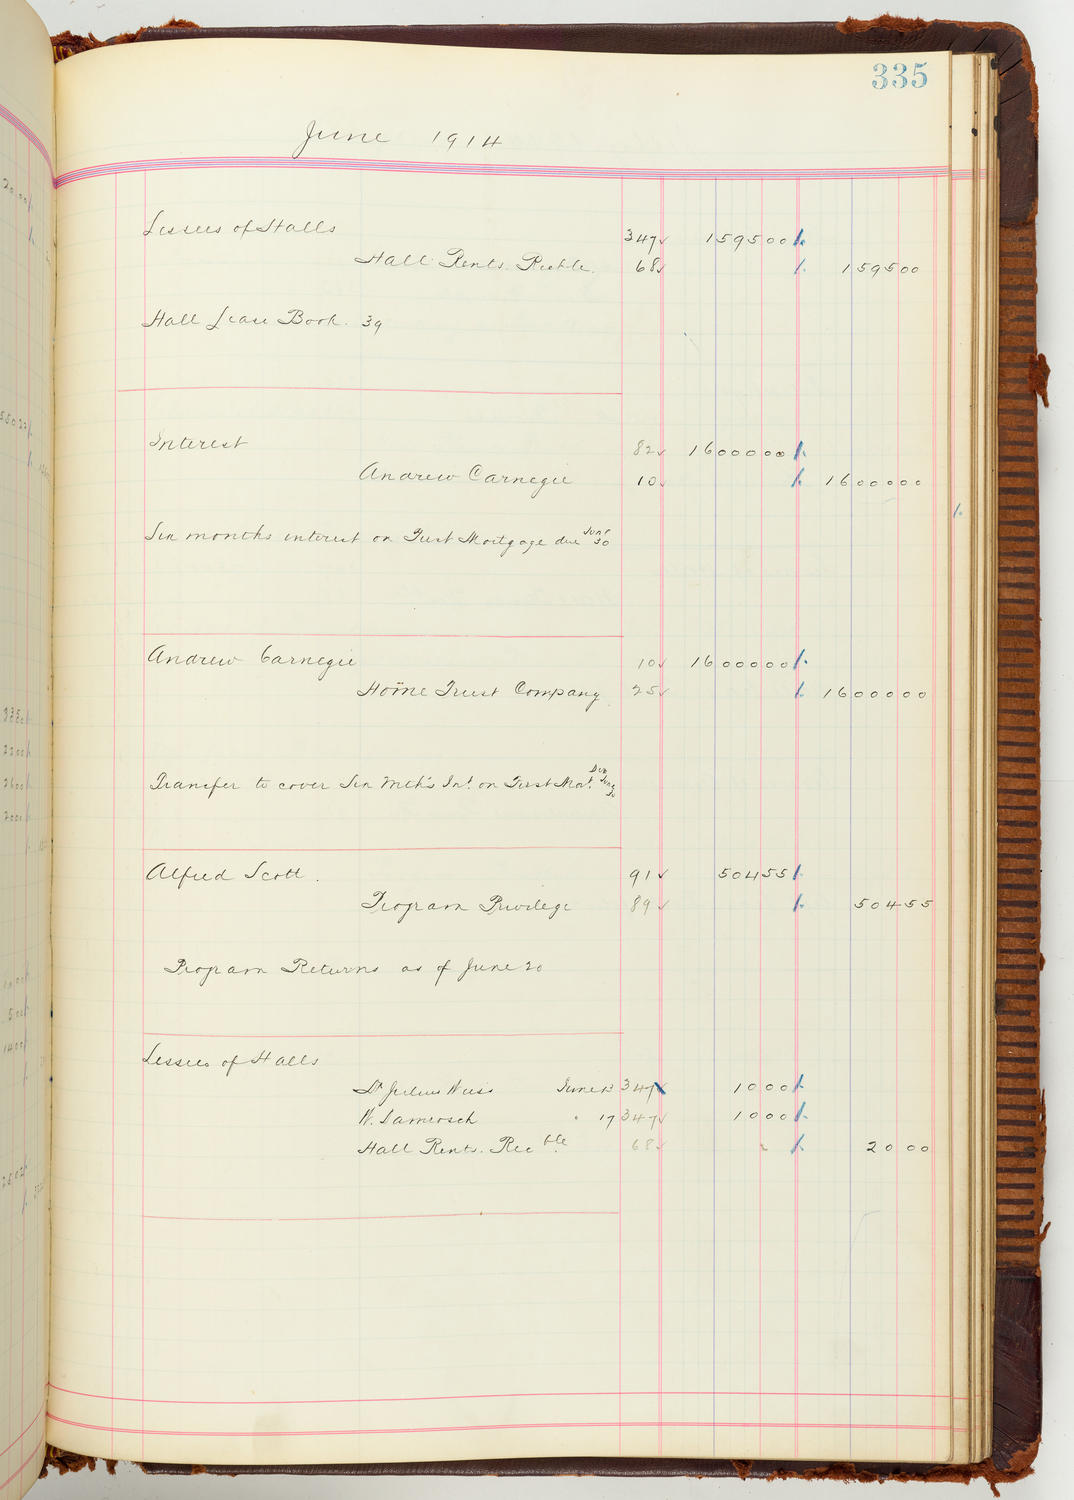 335
June 1914
Lessees of Halls 347 1595 00
Hall Rents. Rec'ble. 68 1595 00
Hall Lease Book. 39
Interest 82 16000 00
Andrew Carnegie 10 16000 00
Six months interest on First Mortgage due June 30
Andrew Carnegie 10 16000 00
Home Trust Company 25 16000 00
Transfer to cover Six Mth's Int. on First Mor't. Due June 30
Alfred Scott. 91 504 55
Program Privilege 89 504 55
Program Returns as of June 20
Lessees of Halls
Dr Julius June 13 347 10 00
W. Damrosch " 17 347 10 00
Hall Rents. Rec ble. 68 20 00